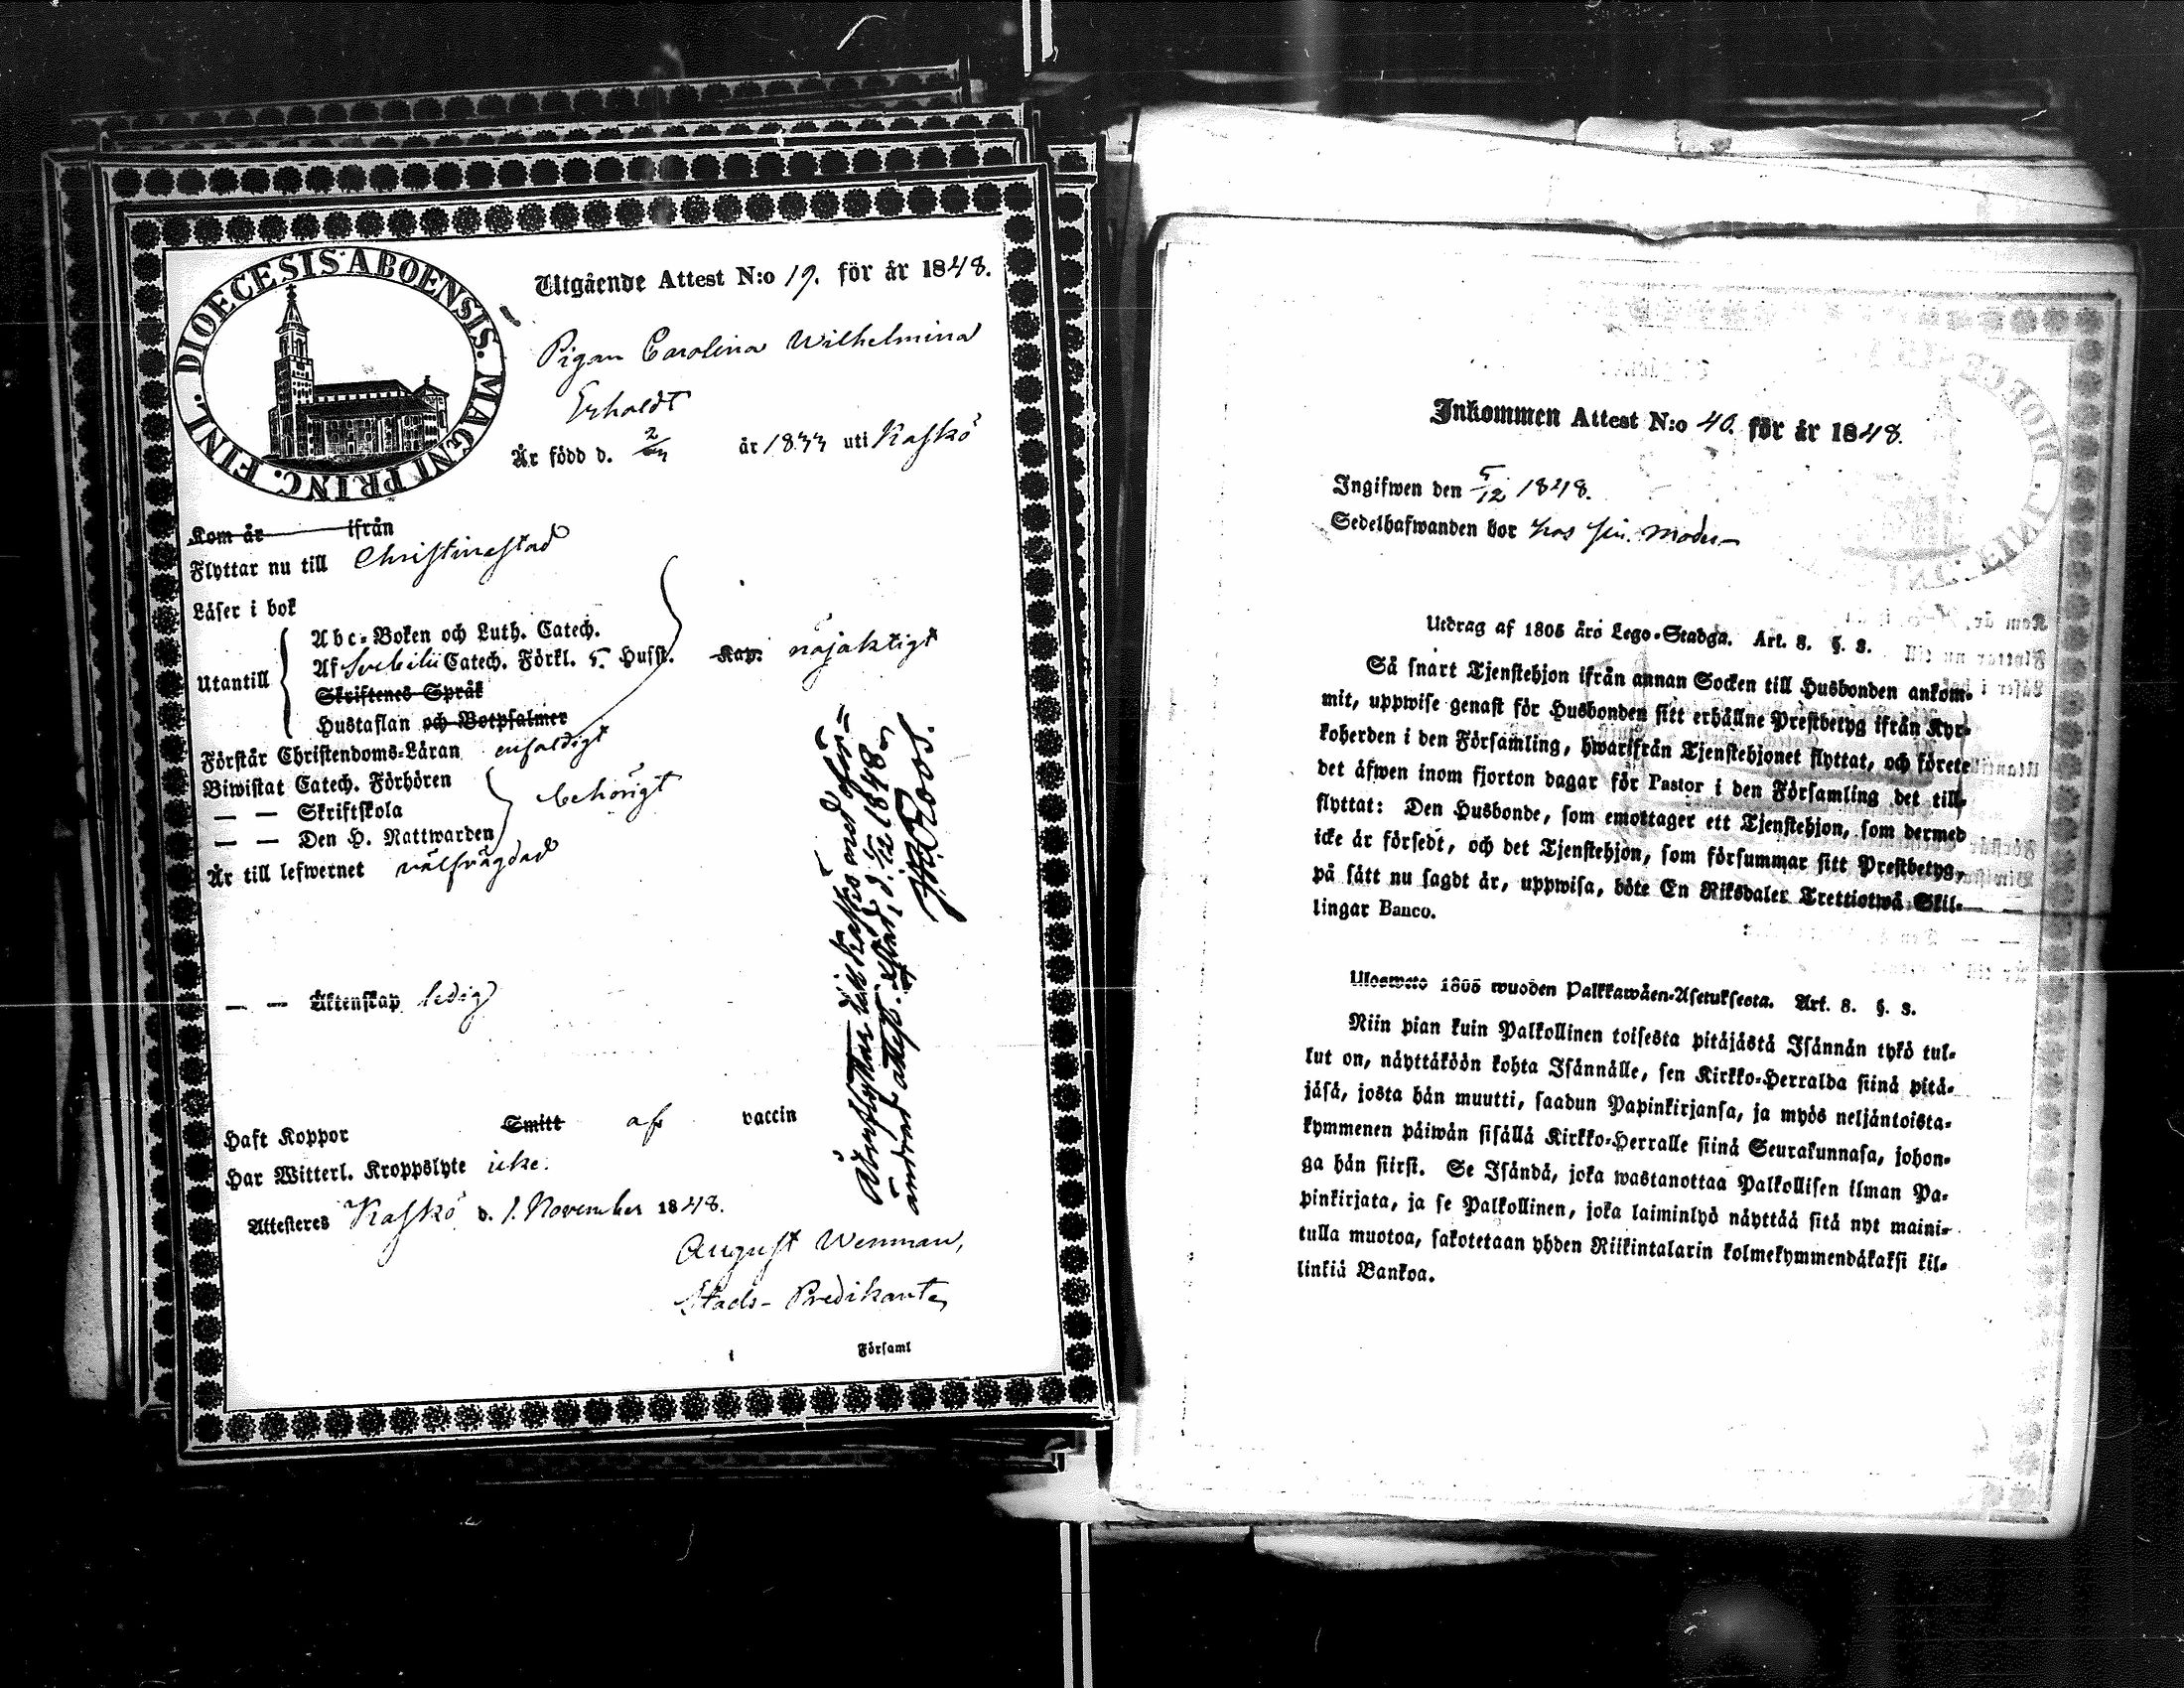 DIOECESIS ABOENSIS. MAGNI PRINC. FINL.
Utgående Attest N:o 19. för år 1848.
Pigan Carolina Wilhelmina
Erholdt
Är född d. 2/ år 1833 uti Kaskö
Kom år ifrån
Flyttar nu till Christinestad
Läser i bok
Utantill
Abc-Boken och Luth. Catech.
Af Svebilii Catech. Förkl. 5. Hufst. Kap. nöjaktigt
Skriftenes Språk
Hustaflan och Botpsalmer
Förstår Christendoms-Läran enfaldigt
Biwistat Catech. Förhören
— — Skriftskola behörigt
— — Den H. Nattwarden
Är till lefwernet välfrägdad
— — Äktenskap ledig
Haft Koppor Smitt af vaccin
Har Witterl. Kroppslyte icke.
Attesteres Kaskö d. 1. November 1848.
August Wenman,
Stads-Predikant
i Församl
Återflyttar till Kaskö med oför-
ändrad attest. d. 5/12 1848
Roos.
Inkommen Attest N:o 40. för år 1848.
Ingifwen den 5/12 1848.
Sedelhafwanden bor hos sin moder
Utdrag af 1805 års Lego-Stadga. Art. 8. §. 3.
Så snart Tjenstehjon ifrån annan Socken till Husbonden ankom-
mit, uppwise genast för Husbonden sitt erhållne Prestbetyg ifrån Kyr-
koherden i den Församling, hwarifrån Tjenstehjonet flyttat, och förete
det äfwen inom fjorton dagar för Pastor i den Församling det till-
flyttat: Den Husbonde, som emottager ett Tjenstehjon, som dermed
icke är försedt, och det Tjenstehjon, som försummar sitt Prestbetyg,
på sätt nu sagdt är, uppwisa, böte En Riksdaler Trettiotwå Skil-
lingar Banco.
Ulosweto 1805 wuoden Palkkawäen-Asetuksesta. Art. 8. §. 3.
Niin pian kuin Palkollinen toisesta pitäjästä Isännän tykö tul-
lut on, näyttäköön kohta Isännälle, sen Kirkko-Herralda siinä pitä-
jäsä, josta hän muutti, saadun Papinkirjansa, ja myös neljäntoista-
kymmenen päiwän sisällä Kirkko-Herralle siinä Seurakunnasa, johon-
ga hän siirst. Se Isändä, joka wastanottaa Palkollisen ilman Pa-
pinkirjata, ja se Palkollinen, joka laiminlyö näyttää sitä nyt maini-
tulla muotoa, sakotetaan yhden Riikintalarin kolmekymmendäkaksi kil-
linkiä Bankoa.